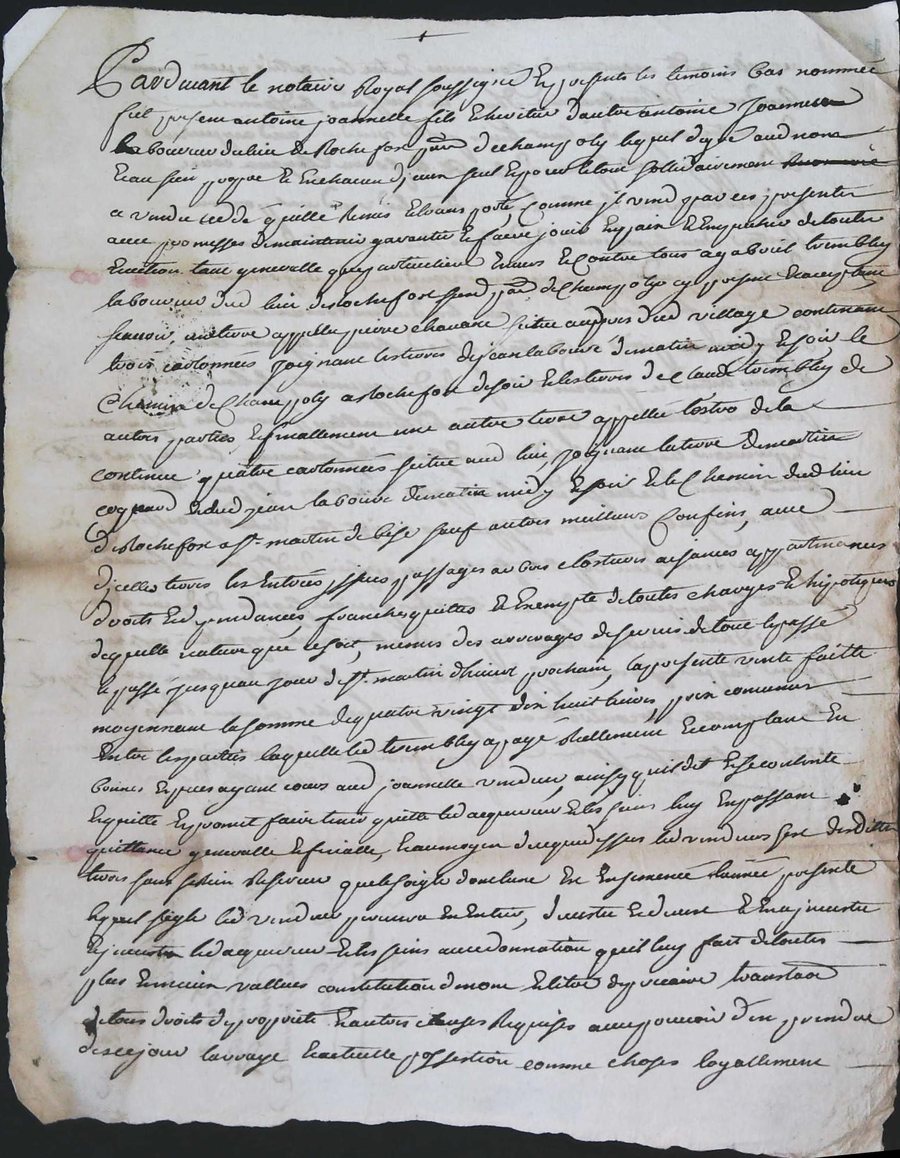 Pardevant le notaire Royal soussigné Et presents les temoins bas nommés
fut present antoine joannelle fils Et heritier d'autre antoine joannelle
laboureur du lieu de Rochefort par.se de champoly lequel de gré aud nom
Et au sien propre Et En chacun d'jceux seul Et pour le tout sollidairement
a vendu cedé quitté Remis Et transporté comme jl vend par ces presentes
avec promesses de maintenir garantir Et faire jouir En paix Et Empecher de toutte
Eviction tant generalle que particuliere Envers Et Contre tous a gabriel trembley
laboureur dud lieu de Rochefort susd par.se de Champoly cy present Et acceptant
scavoir, une terre appellée pierre chavane scituée aupres dud village contenant
trois cartonnées joignant les terres de jean laboure de matin midy Et soir le
Chemin de Champoly a Rochefort de soir Et les terres de Claude trembley de
autres parties, Et finallement une autre terre appellée de la
contenue quatre cartonnées scituée aud lieu, joignant la terre de martin
coquard Et dud jean laboure de matin midy Et soir Et le Chemin dud lieu
de Rochefort a St. martin de bise sauf autres meilleurs Confins, avec
d'jcelles terres les Entrées jssues passages arbres clostures aisances appartenances
droits Et dependances, franches quittes Et Exempte de toutes charges Et hipoteques
de quelle nature que ce soit, mesmes des arrerages de servis de tout le passé
le passé jusqu'au jour de St. martin d'hiver prochain, la presente vente faitte
moyennant la somme de quatre vingt dix huit livres, prix convenus
Entre les parties laquelle led trembley a payé Réellement Et comptant En
bonnes Especes ayant cours aud joannelle vendeur, ainsy qu'il dit Et se contente
Et quitte Et promet faire tenir quitte led acquereur Et les siens luy En passant
quittance generalle Et finalle, Et au moyen de ce que dessus led vendeur s'est desditte
terres sans se Rien Reserver que le seigle dont l'une Est Ensemencé l'année presente
lequel seigle led vendeur prendra En Entier, devestu Et demet Et En a jnvestu
Et jnvestit led acquereur Et les siens avec donnation qu'il luy fait de toutes
plus Et moins vallues constitution de nom Et titre de precaire translaon
de tous droits de proprieté Et autres clauses Requises avec pouvoir d'en prendre
dès ce jour la vraye Et actuelle possession comme choses loyallement